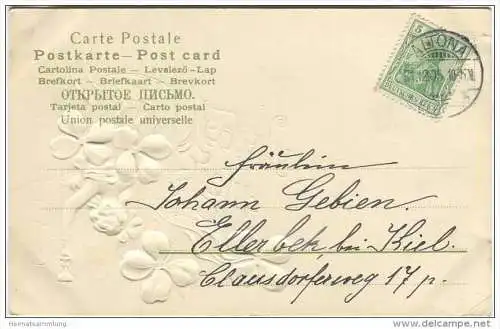 Carte Postale
Postkarte — Post card
Cartolina Postale — Levelező-Lap
Brefkort — Briefkaart — Brevkort
ОТКРЫТОЕ ПИСЬМО.
Tarjeta postal — Carto postal
Union postale universelle
5
ALTONA
Fräulein
Johann Gebien.
Ellerbek, bei Kiel.
Clausdorferweg 17 p.
Heimatsammlung
delcampe.net